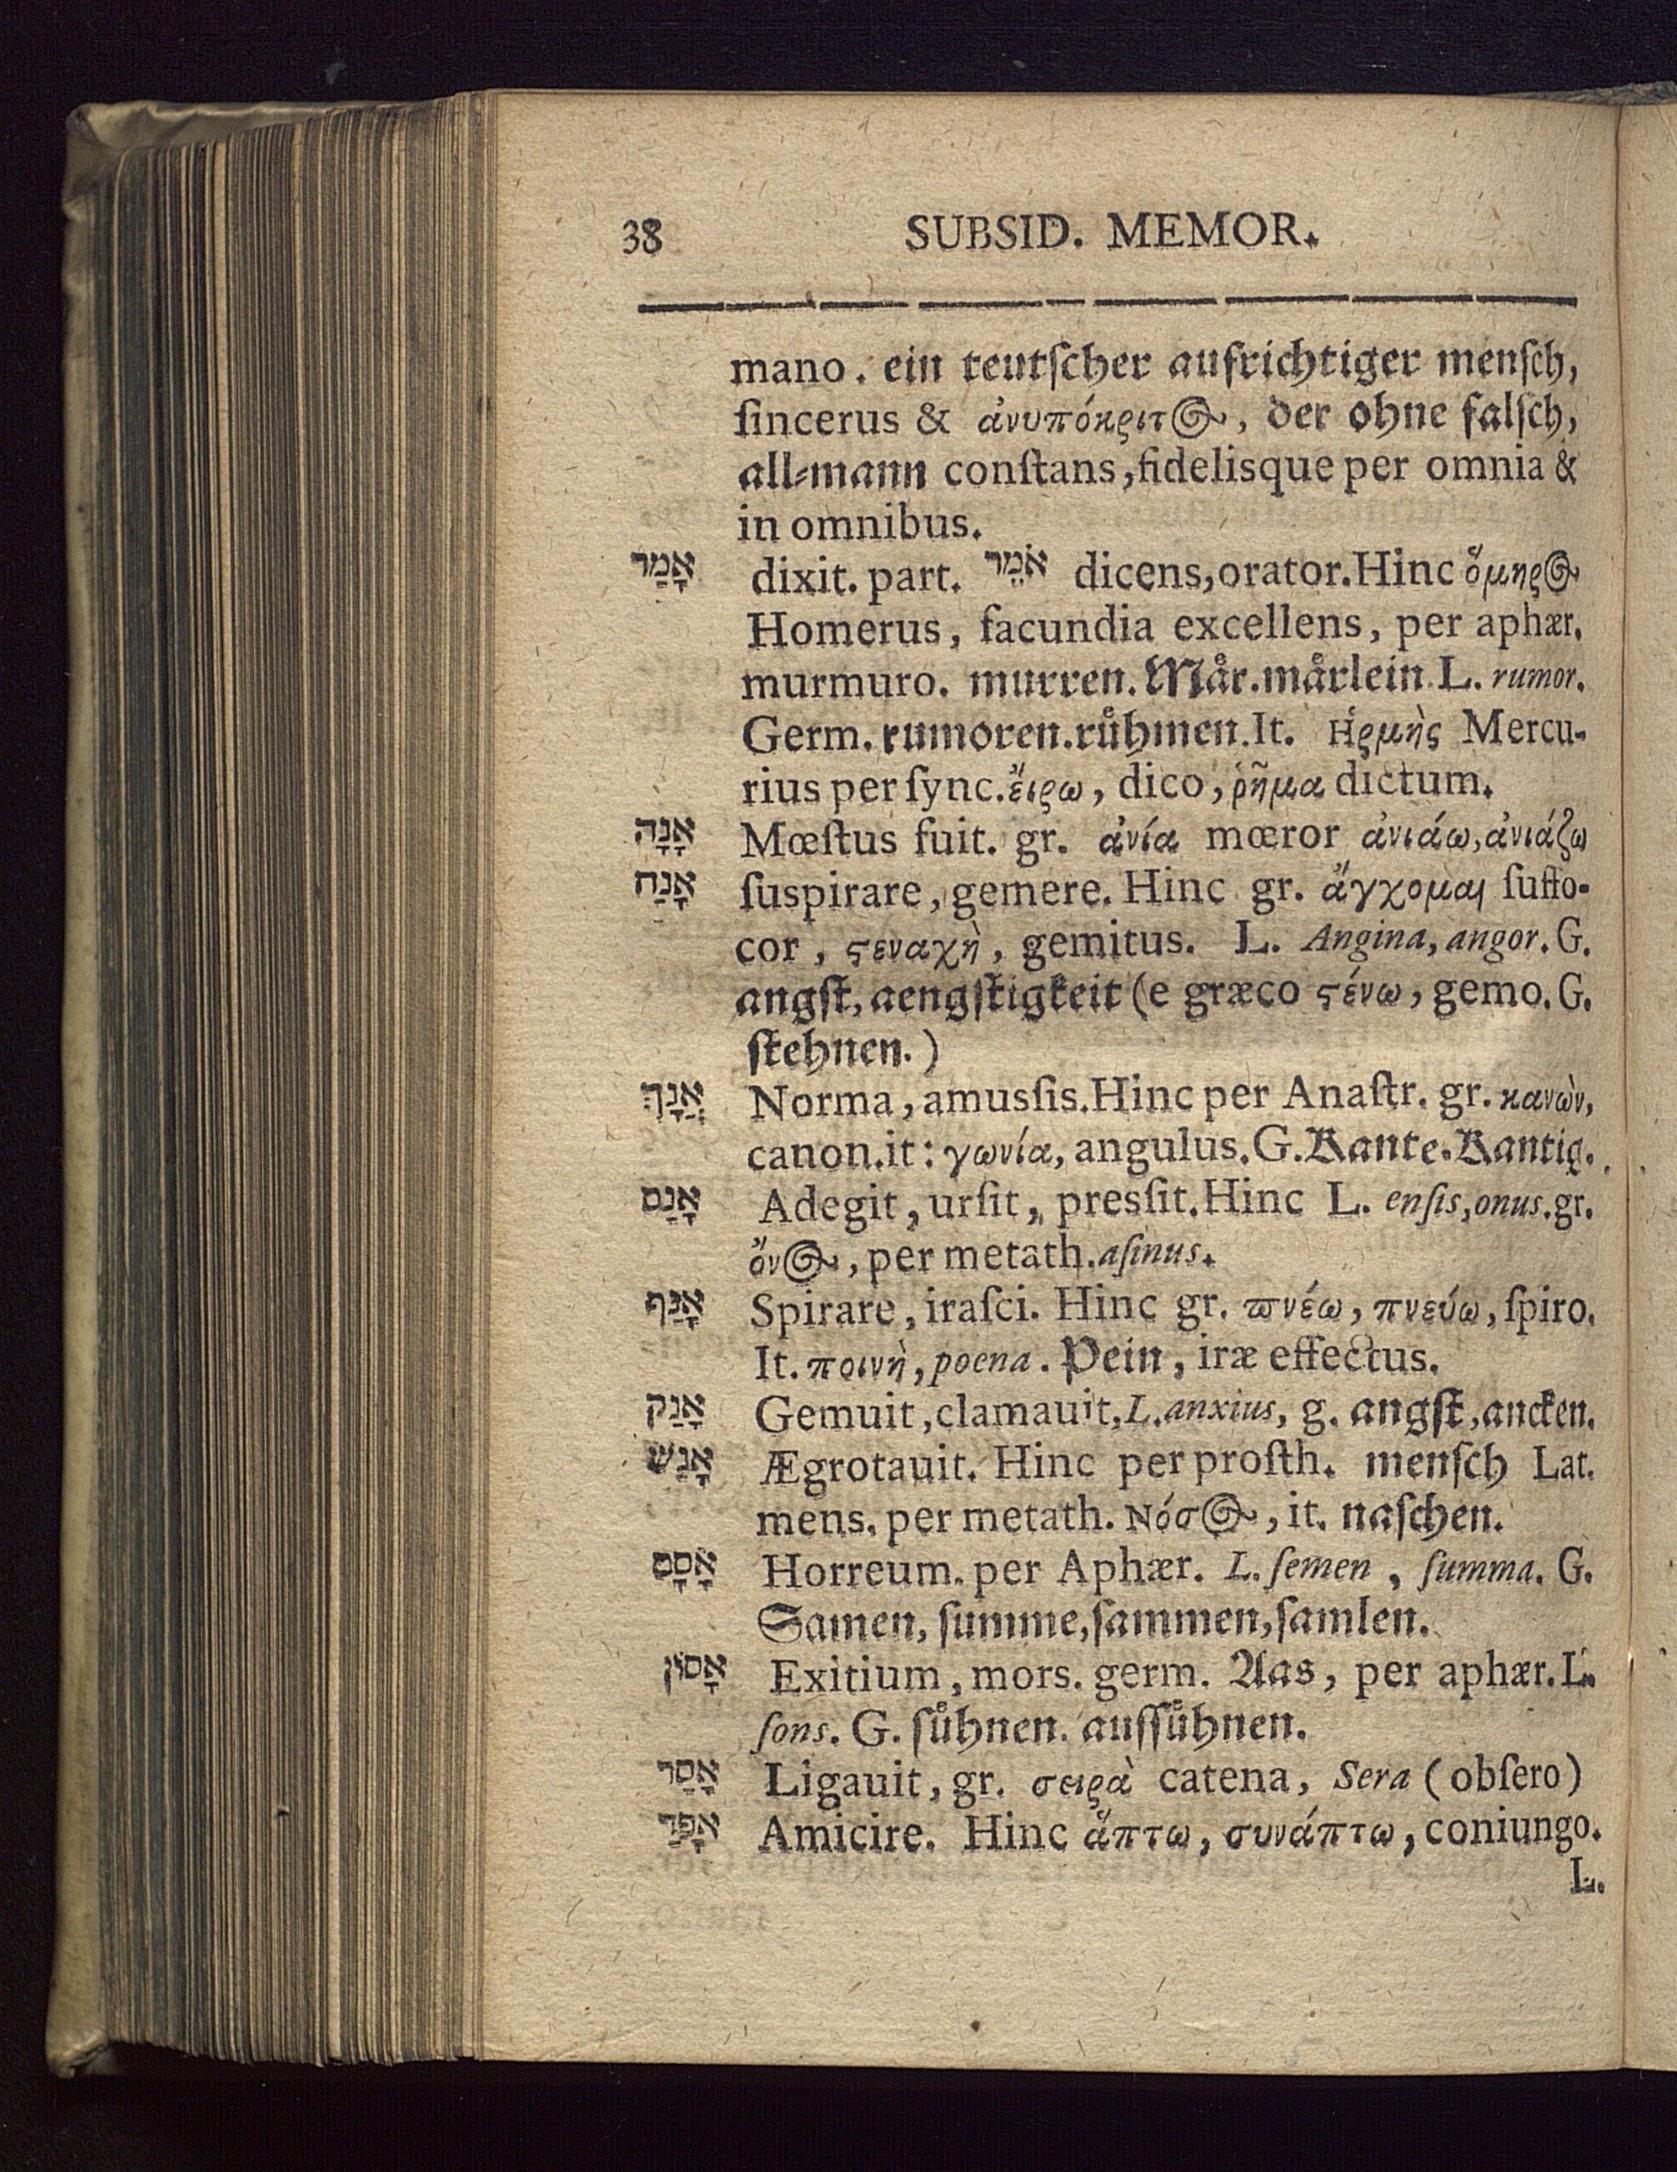 38 SUBSID. MEMOR.
mano. ein teutſcher aufrichtiger menſch,
ſincerus & ἀνυπόκριτος, der ohne falſch,
all-mann conſtans, fidelisque per omnia &
in omnibus.
אָמַר dixit. part. אֹמֵר dicens, orator. Hinc ὅμηρος
Homerus, facundia excellens, per aphær.
murmuro. murren. Måꝛ. måꝛlein. L. rumor.
Germ. rumoren. růhmen. It. Ηἑρμὴς Mercu-
rius per ſync. ἔιρω, dico, ῥῆμα dictum.
אָנָה Mœſtus fuit. gr. ἀνία mœror ἀνιάω, ἀνιάζω
אָנַח ſuspirare, gemere. Hinc gr. ἄγχομαι ſuffo-
cor, ϛεναχὴ, gemitus. L. Angina, angor. G.
angſt, aengſtigkeit (e græco ϛένω, gemo. G.
ſtehnen.)
אֲנָךְ Norma, amusſis. Hinc per Anaſtr. gr. κανὼν,
canon. it: γωνία, angulus. G. Kante. Kantig.
אָנַס Adegit, urſit, presſit. Hinc L. enſis, onus. gr.
ὄνος, per metath. aſinus.
אָנַף Spirare, iraſci. Hinc gr. ϖνέω, πνεύω, ſpiro.
It. ποινὴ, poena. Pein, iræ effectus.
אָנַק Gemuit, clamauit, L. anxius, g. angſt, ancken.
אָנַשׁ Ægrotauit. Hinc per proſth. menſch Lat.
mens. per metath. Νόσος, it. naſchen.
אָסָם Horreum. per Aphær. L. ſemen, ſumma. G.
Samen, ſumme, ſammen, ſamlen.
אָסוֹן Exitium, mors. germ. Aas, per aphær. L.
ſons. G. ſůhnen. auſſůhnen.
אָסַר Ligauit, gr. σειρὰ catena, Sera (obſero)
אָפַד Amicire. Hinc ἅπτω, συνάπτω, coniungo.
L.